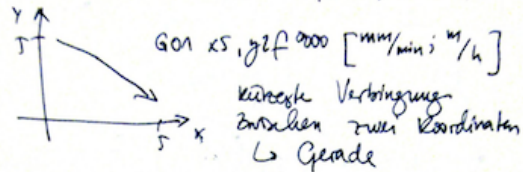 Y
5
G01 x5, y2 f 9000 [mm/min; m/h]
kürzeste Verbingung
zwischen zwei Koordinaten
↳ Gerade
5 x